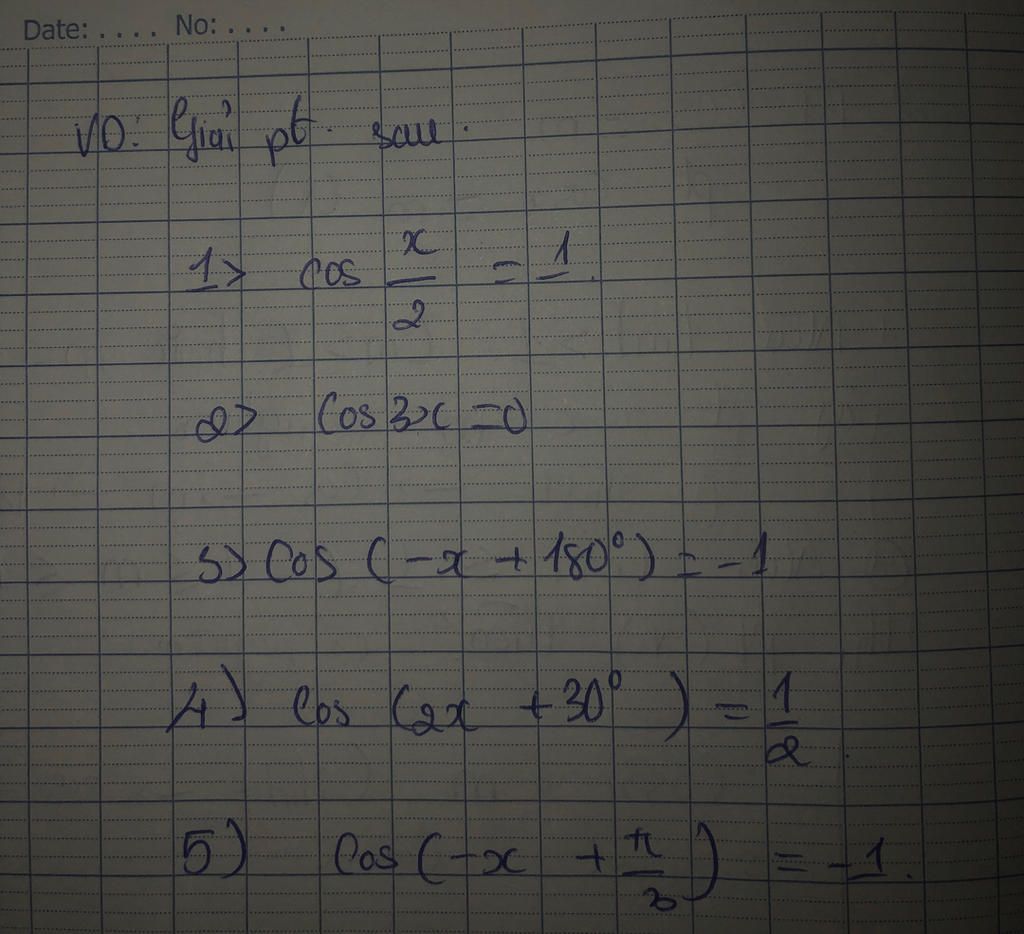 Date: .... No: ....
VD: Giải pt sau.
1> cos x/2 = 1.
2> cos3x = 0
3) cos (-x + 180°) = -1
4) cos (2x + 30°) = 1/2.
5) cos (-x + π/3) = -1.